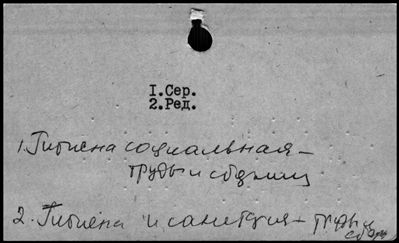 I.Сер.
2.Ред.
1. Гигиена социальная –
труды и сборники
2. Гигиена и санитария – труды и
сборн.